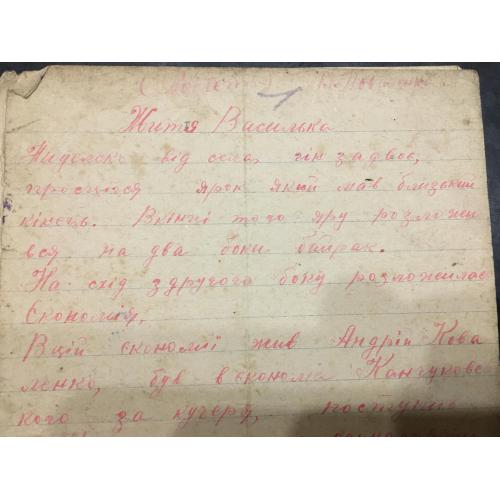 Життя Василька
Нидолеко від села, гін задвоє,
простягся ярок який мав близький
кінець. Вкінчі того яру розложи
вся на два боки байрак.
На схід здругого боку розложилас
Єкономія,
Вцій єкономії жив Андрій Кова
ленко, був вєконома Канчуковс
кого за кучера,